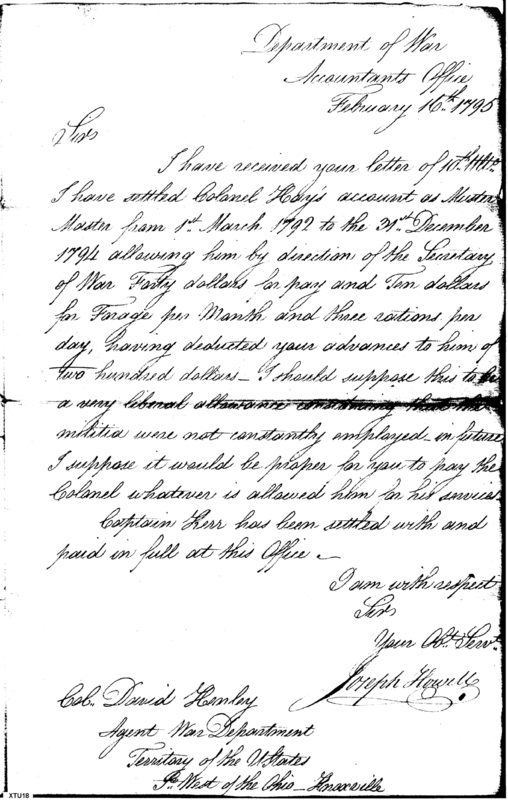 Department of War
Accountants Office
February 16th 1795
Sir
I have received your letter of 10th Ulto
I have settled Colonel Hay's account as Muster
Master from 1st March 1792 to the 31st December
1794 allowing him by direction of the Secretary
of War Forty dollars for pay and Ten dollars
for Forage per Month and three rations per
day, having deducted your advances to him of
two hundred dollars — I should suppose this to be
a very liberal allowance considering that the
militia were not constantly employed — in future
I suppose it would be proper for you to pay the
Colonel whatever is allowed him for his services
Captain Kerr has been settled with and
paid in full at this Office —
I am with respect
Sir
Your Obt. Servt.
Joseph Howell
Col. David Henley
Agent War Department
Territory of the UStates
So. West of the Ohio — Knoxville
XTU18